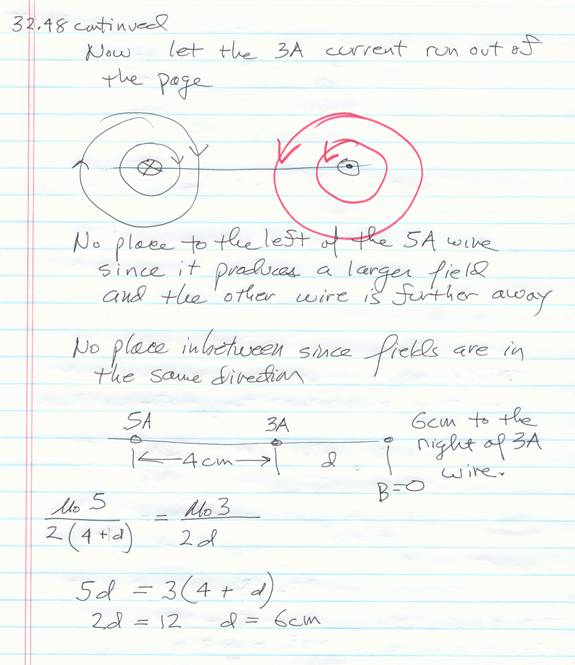 32.48 continued
Now let the 3A current run out of
the page
No place to the left of the 5A wire
since it produces a larger field
and the other wire is further away
No place inbetween since fields are in
the same direction
5A 3A 6cm to the
right of 3A
wire.
|←4cm→| d
B=0
μ₀5 / 2(4+d) = μ₀3 / 2d
5d = 3(4 + d)
2d = 12 d = 6cm